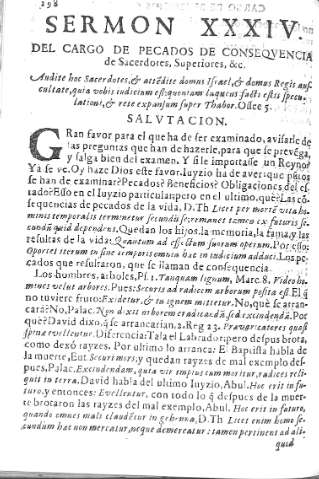 198
SERMON XXXIV.
DEL CARGO DE PECADOS DE CONSEQVENCIA
de Sacerdotes, Superiores, &c.
Audite hoc Sacerdotes, & attēdite domus Israel, & domus Regis aus
cultate, quia vobis iudicium est: quoniam laqueus facti estis specu-
lationi, & rete expansum super Thabor. Oseæ 5.
SALVTACION.
GRan favor para el que ha de ser examinado, avisarle de
las preguntas que han de hazerle, para que se prevēga,
y salga bien del examen. Y si le importasse un Reyno?
Ya se ve. Oy haze Dios este favor. Iuyzio ha de aver: que
se han de examinar? Pecados? Beneficios? Obligaciones del es-
tado? Esso en el Iuyzio particular: pero en el ultimo, què? Las cō-
sequencias de pecados de la vida, D. Th. Licet per mortē vita ho-
minis temporalis terminetur secundū se: remanet tamen ex futuris se-
cundū quid dependens. Quedan los hijos, la memoria, la fama, y las
resultas de la vida: Quantum ad effectum suorum operum. Por esso:
Oportet iterum in fine temporis omnia hæc in iudicium adduci. Los pe-
cados que resultaron, que se llaman de consequencia.
Los hombres, arboles, Ps. 1. Tanquam lignum, Marc. 8. Video ho-
mines velut arbores. Pues: Securis ad radicem arborum posita est. El q̄
no tuviere fruto: Excidetur, & in ignem mittetur. No, què se arran-
carà? No, Palac. Non dixit arborem eradicandā, sed excindendā. Por
què? David dixo, q̄ se arrancarian, 2. Reg 23. Prævaricatores quasi
spinæ evellentur. Diferencia: Tala el Labrador; pero despues brota,
como dexò rayzes. Por ultimo lo arranca: El Baptista habla de
la muerte, Eut. Securi mors; y quedan rayzes de mal exemplo des-
pues, Palac. Excindendam, quia vir impius cum moritur, radices reli-
quit in terra. David habla del ultimo Iuyzio, Abul. Hoc erit in fu-
turo, y entonces: Evellentur, con todo lo q̄ despues de la muer-
te brotaron las rayzes del mal exemplo, Abul. Hoc erit in futuro,
quando omnes mali claudētur in gehenna, D. Th Licet enim homo se-
cundum hoc non mercatur, neque demereatur: tamen pertinent ad ali-
quid